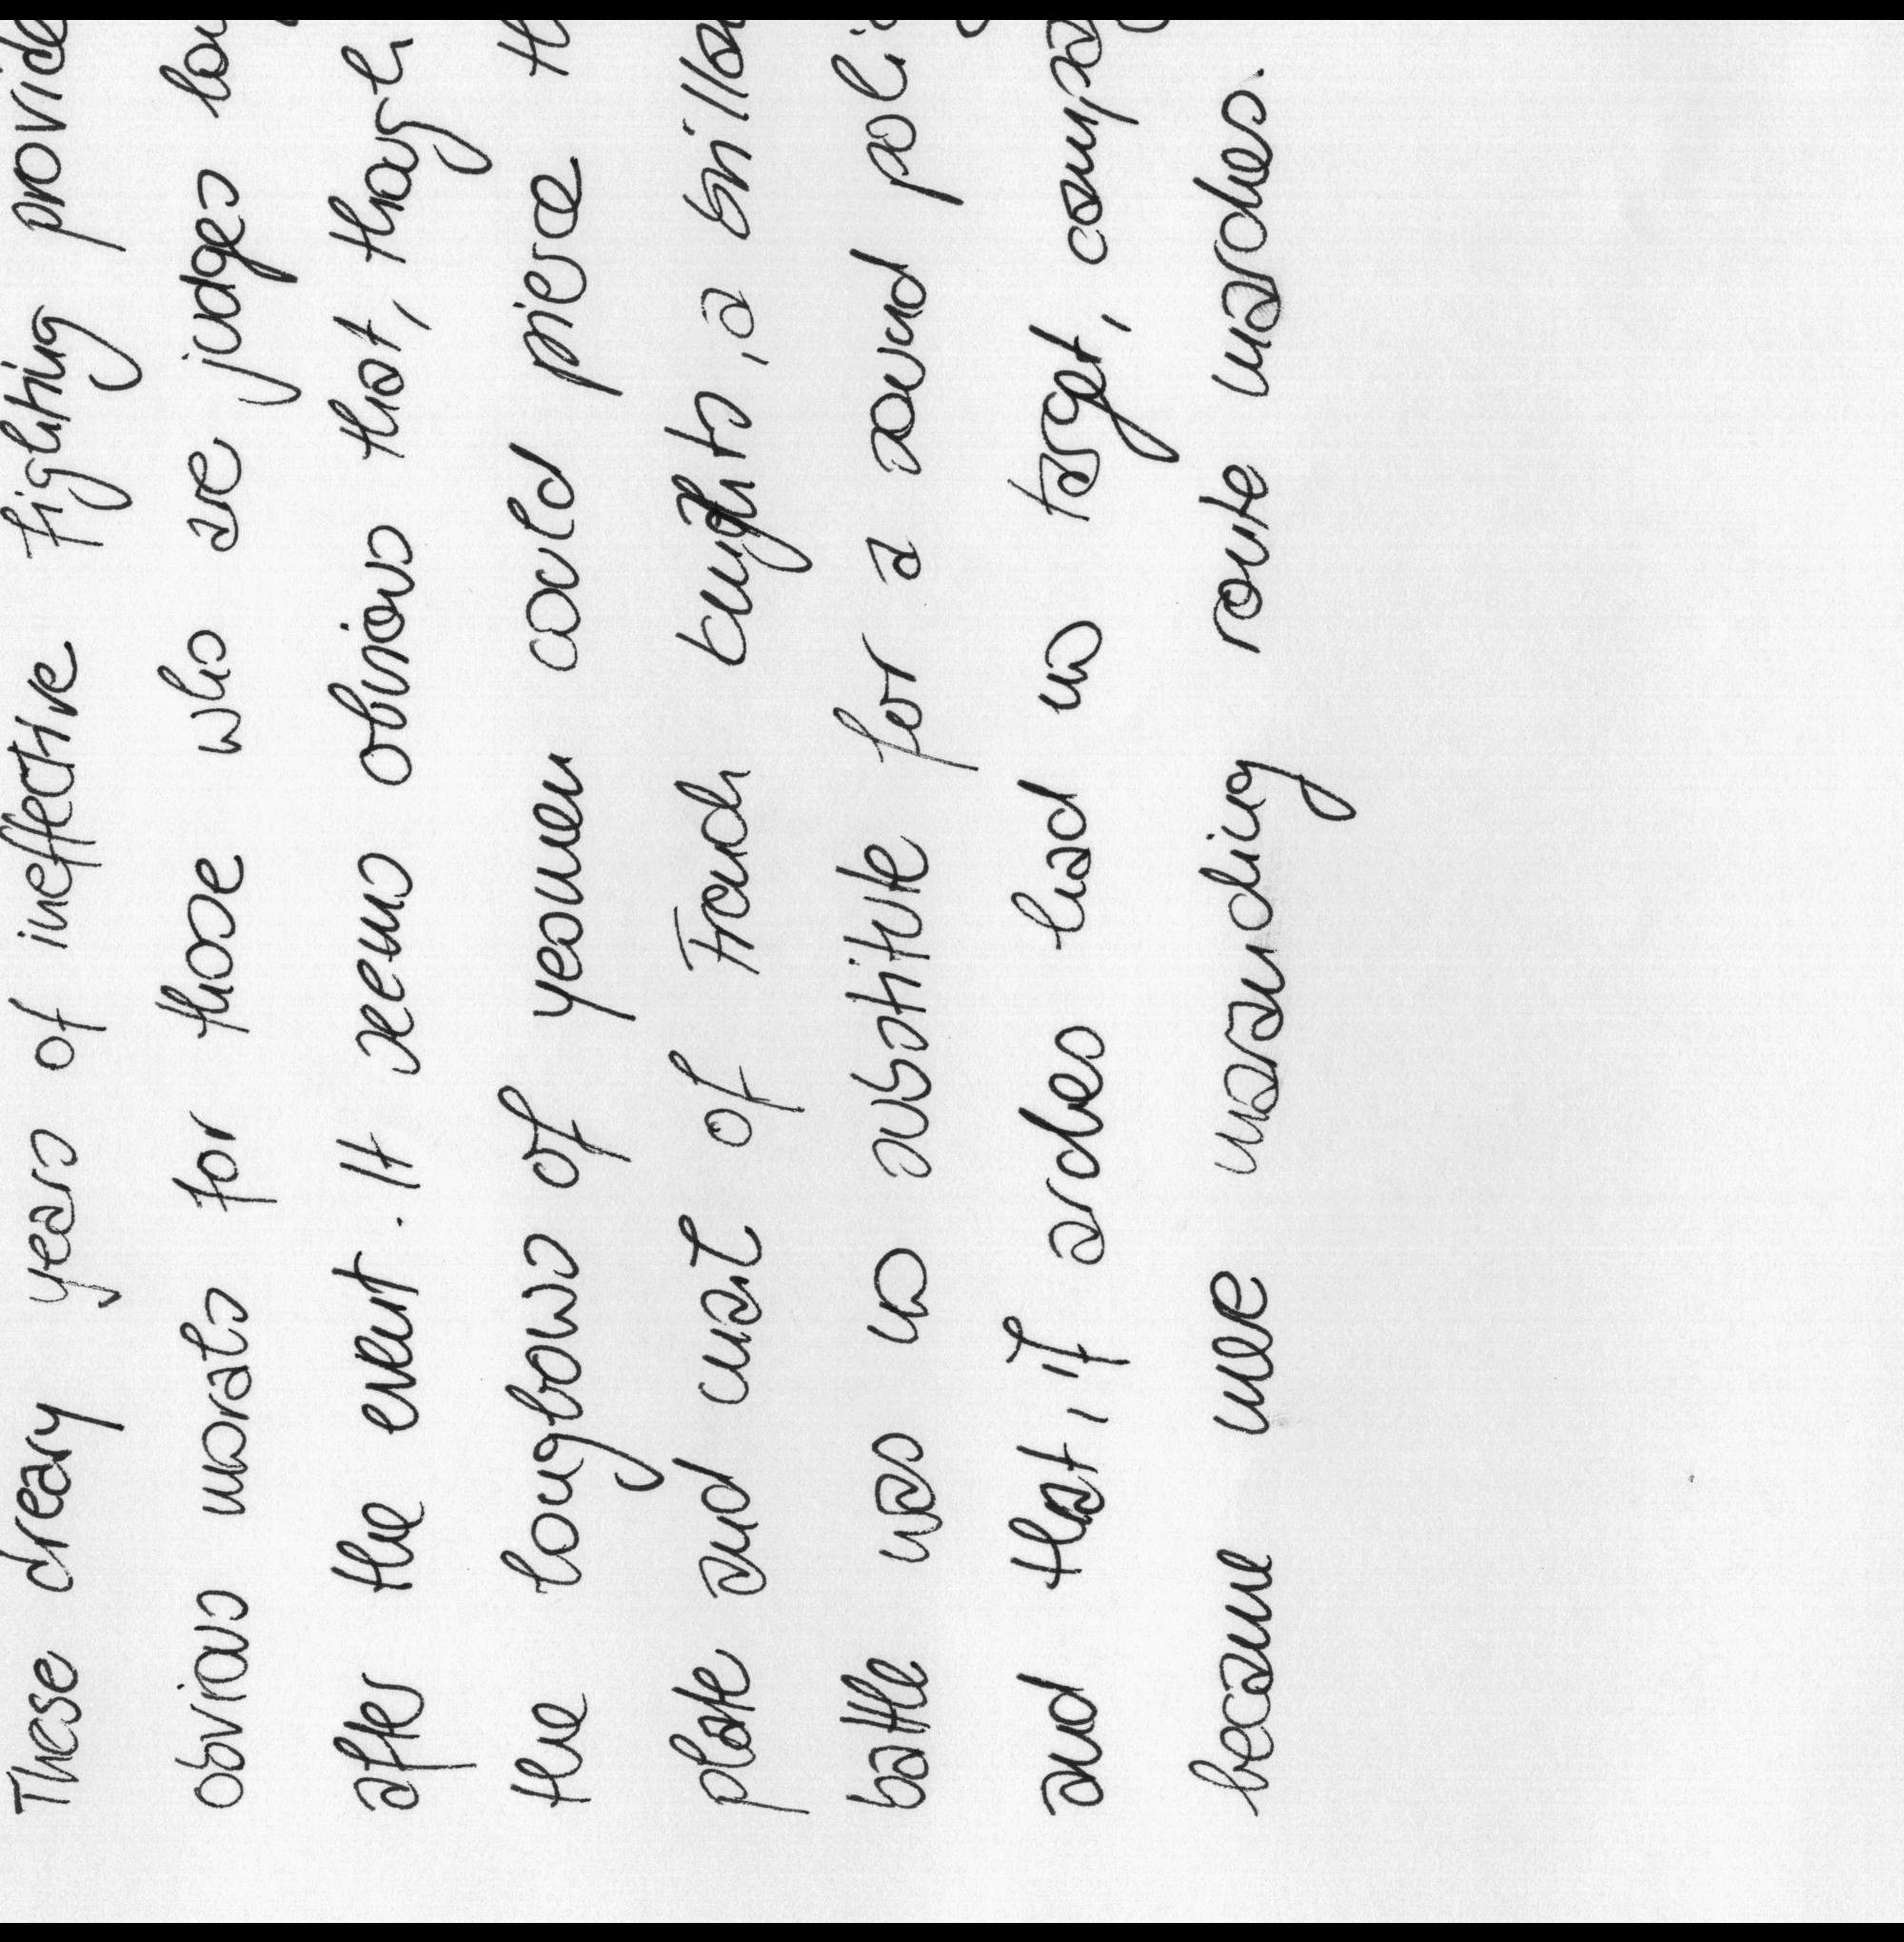 These dreary years of ineffective fighting provide
obvious morals for those who are judges
after the event. It seems obvious that, though
the longbows of yeomen could pierce
plate and mail of French knights, a
battle was no substitute for a sound
and that, if archies had no target,
became mere marauding route marches.